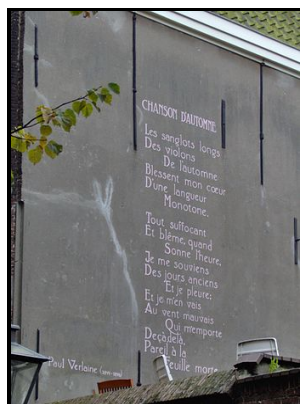 CHANSON D'AUTOMNE
Les sanglots longs
Des violons
De l'automne
Blessent mon cœur
D'une langueur
Monotone.
Tout suffocant
Et blême, quand
Sonne l'heure,
Je me souviens
Des jours anciens
Et je pleure;
Et je m'en vais
Au vent mauvais
Qui m'emporte
Deçà, delà,
Pareil à la
Feuille morte
Paul Verlaine